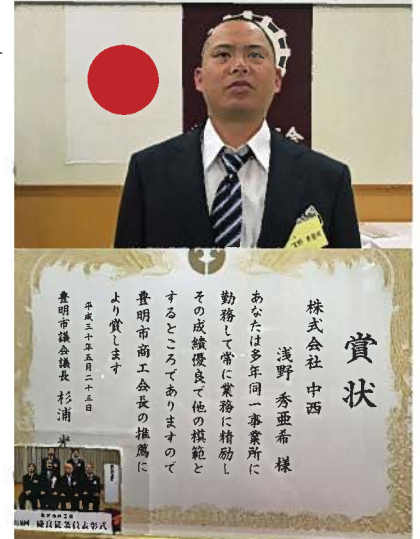 賞状
株式会社 中西
浅野 秀亜希 様
あなたは多年同一事業所に
勤務して常に業務に精励し
その成績優良で他の模範と
するところでありますので
豊明市商工会長の推薦に
より賞します
平成三十年五月二十三日
豊明市議会議長 杉浦
優良従業員表彰式